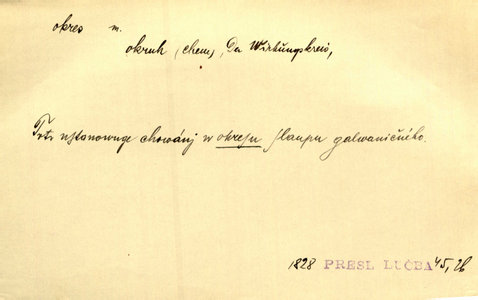 okres m.
okruh (chem), Der Wirkungskreis,
Toto ustanowuge chowánj w okresu slaupu galwaničného.
1828 PRESL LUČBA 45, 26